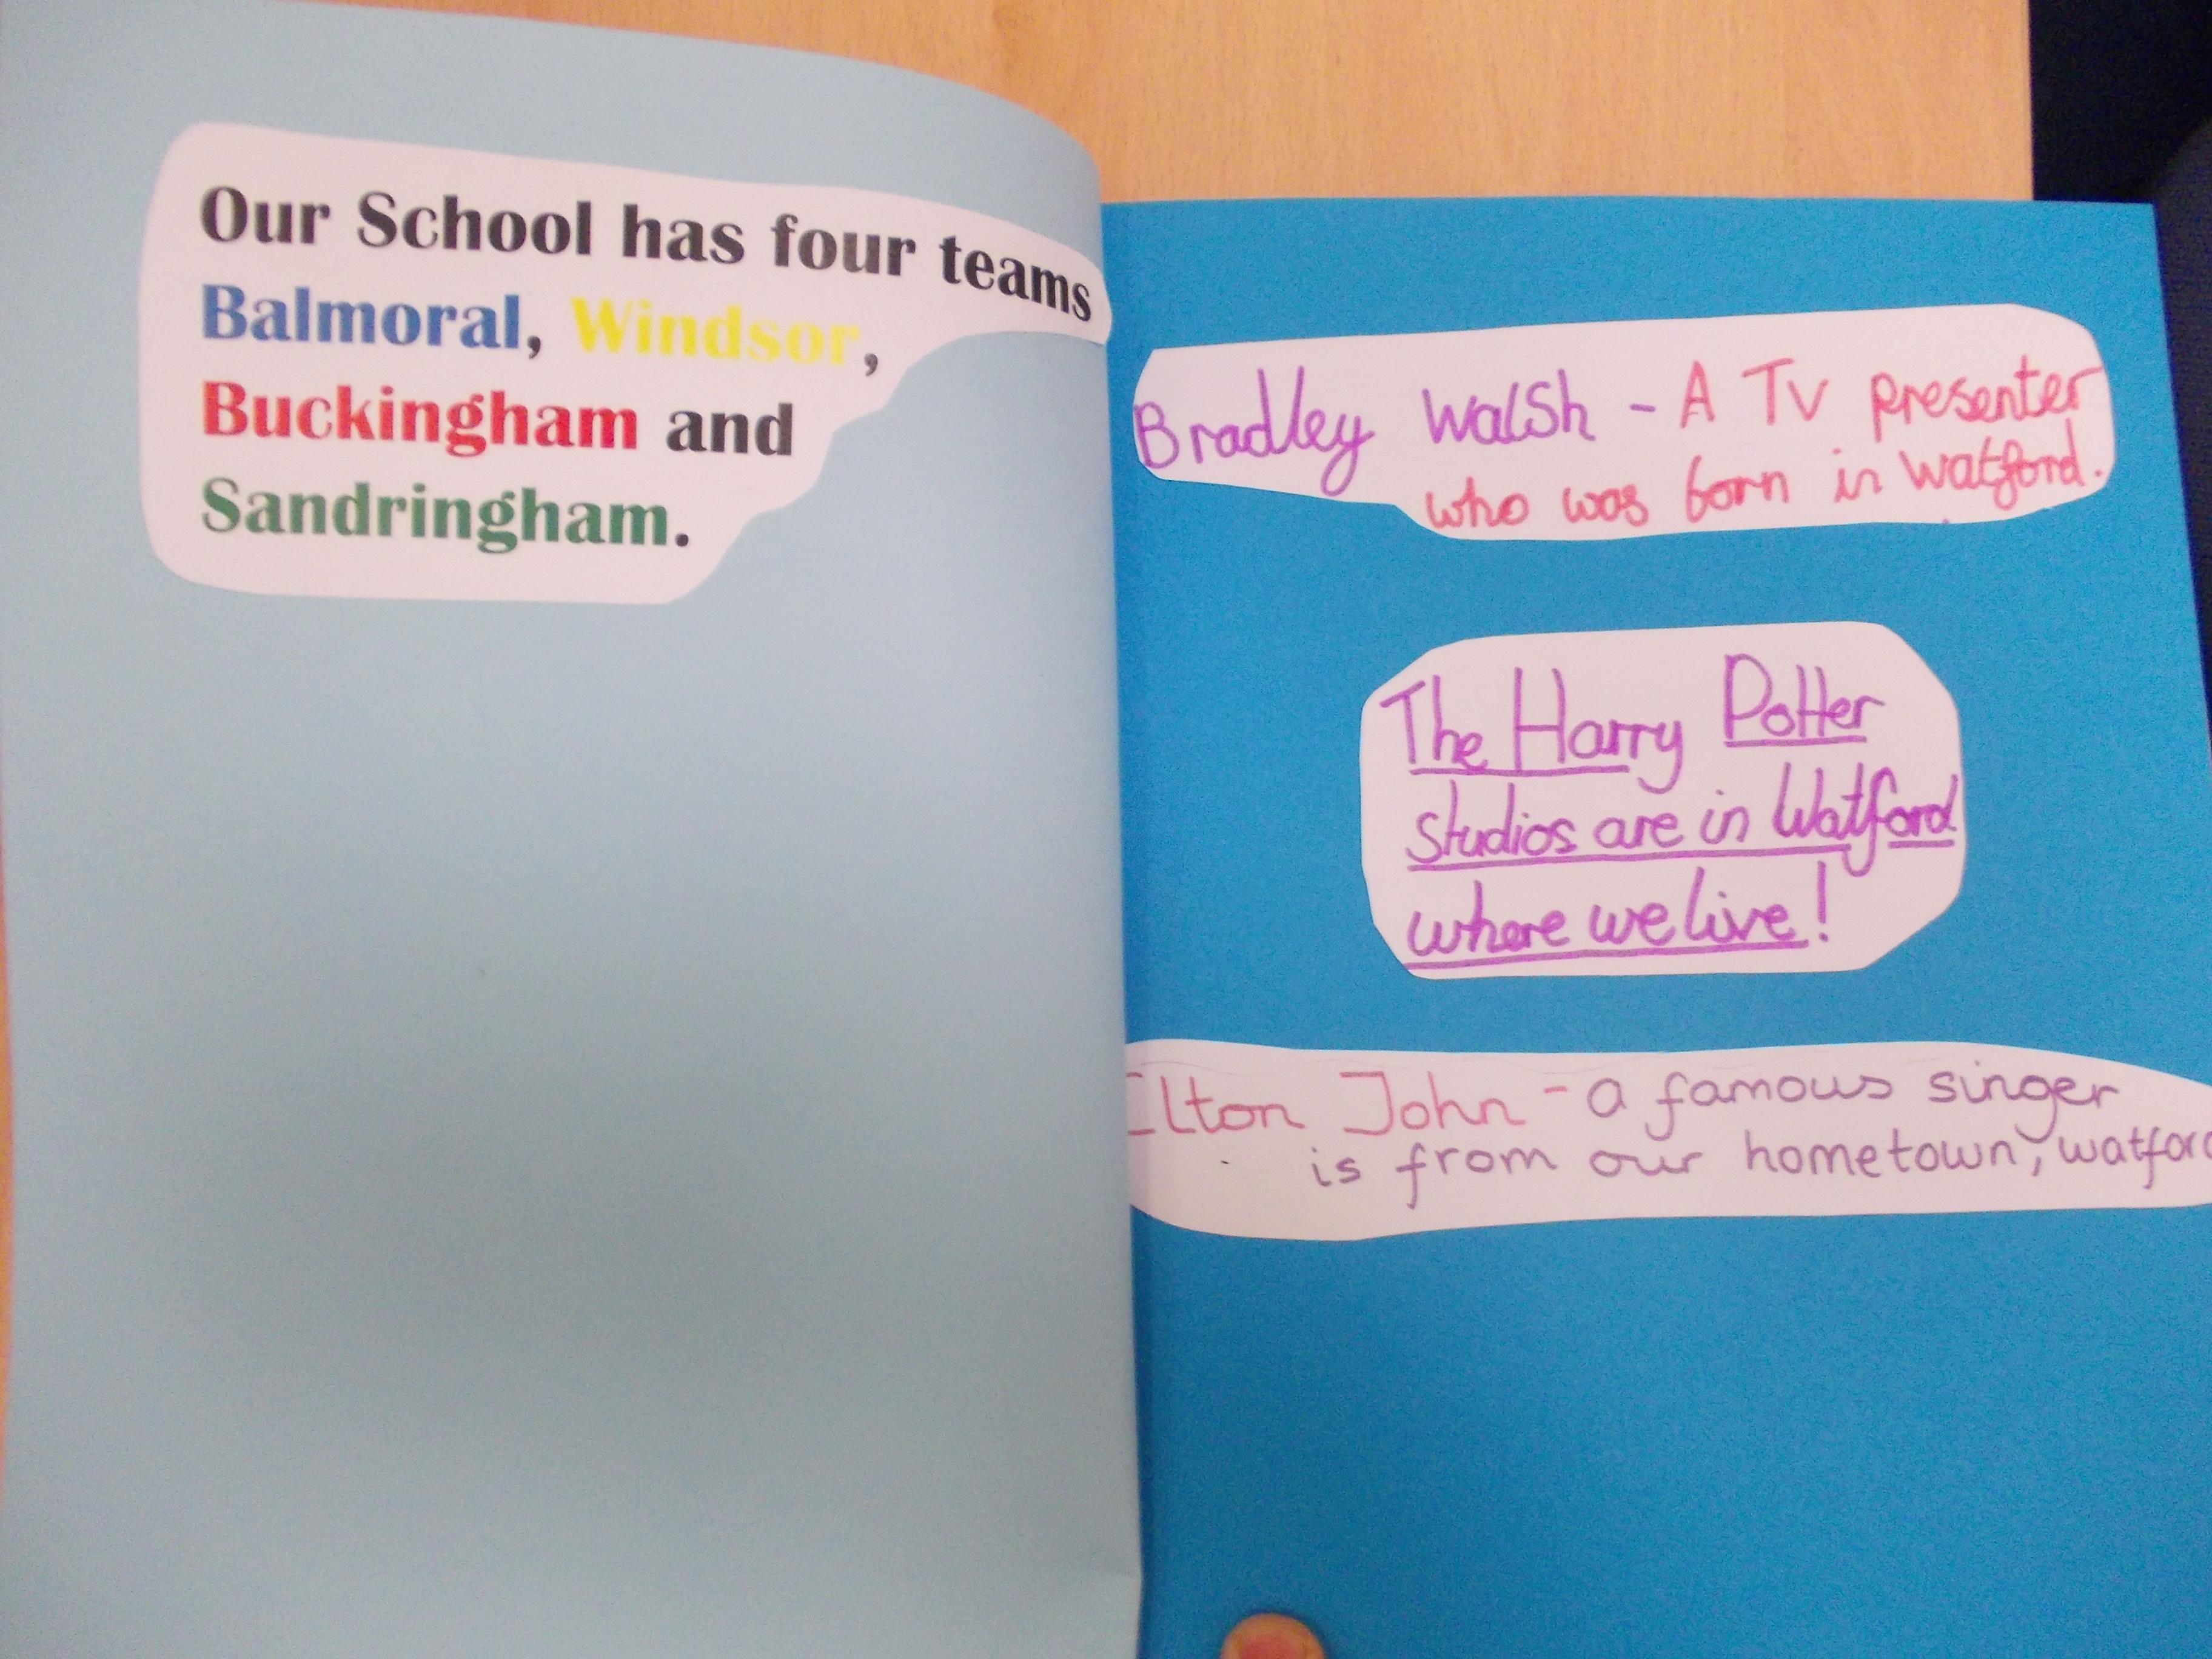 Our School has four teams
Balmoral, Windsor,
Buckingham and
Sandringham.
Bradley Walsh - A TV presenter
who was born in Watford.
The Harry Potter
studios are in Watford
where we live!
Elton John - a famous singer
is from our hometown, watford